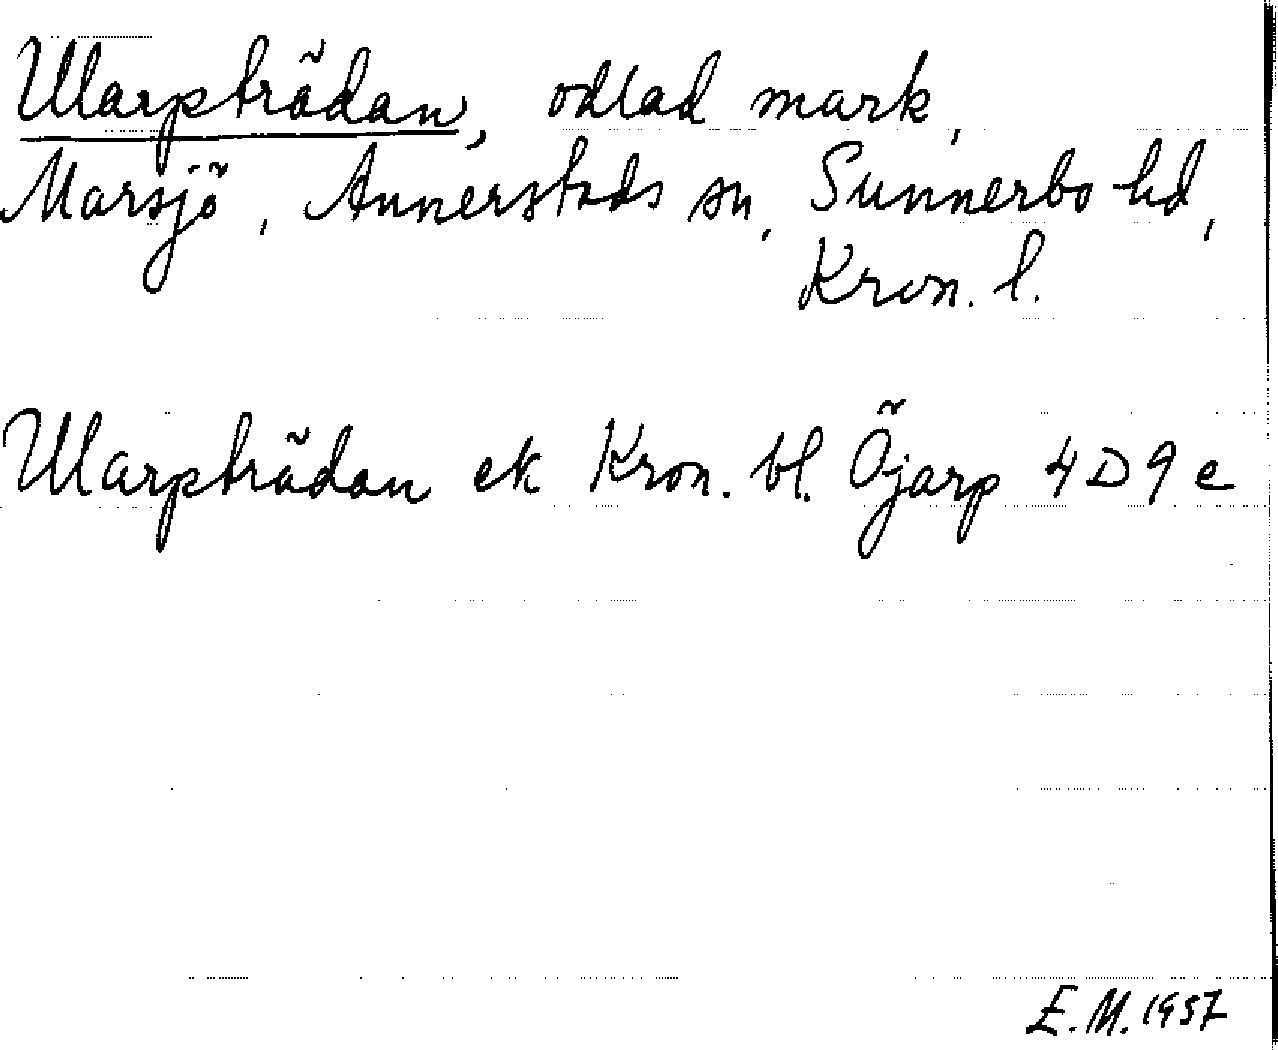 Ularpträdan, odlad mark,
Marsjö, Annerstads sn, Sunnerbo hd,
Kron. l.
Ularpträdan ek Kron. bl. Öjarp 4D9e
E.M. 1957